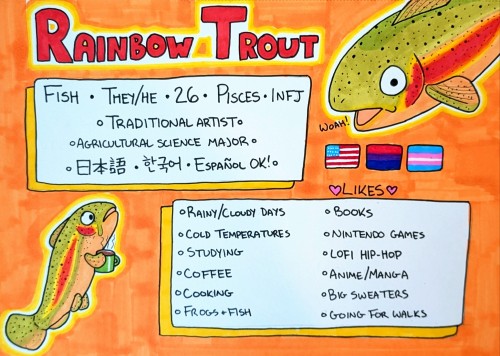 RAINBOW TROUT
FISH • THEY/HE • 26 • PISCES • INFJ
◦ TRADITIONAL ARTIST ◦
◦ AGRICULTURAL SCIENCE MAJOR ◦
◦ 日本語 • 한국어 • ESPAÑOL OK! ◦
WOAH!
LIKES
◦ RAINY/CLOUDY DAYS
◦ COLD TEMPERATURES
◦ STUDYING
◦ COFFEE
◦ COOKING
◦ FROGS + FISH
◦ BOOKS
◦ NINTENDO GAMES
◦ LOFI HIP-HOP
◦ ANIME/MANGA
◦ BIG SWEATERS
◦ GOING FOR WALKS